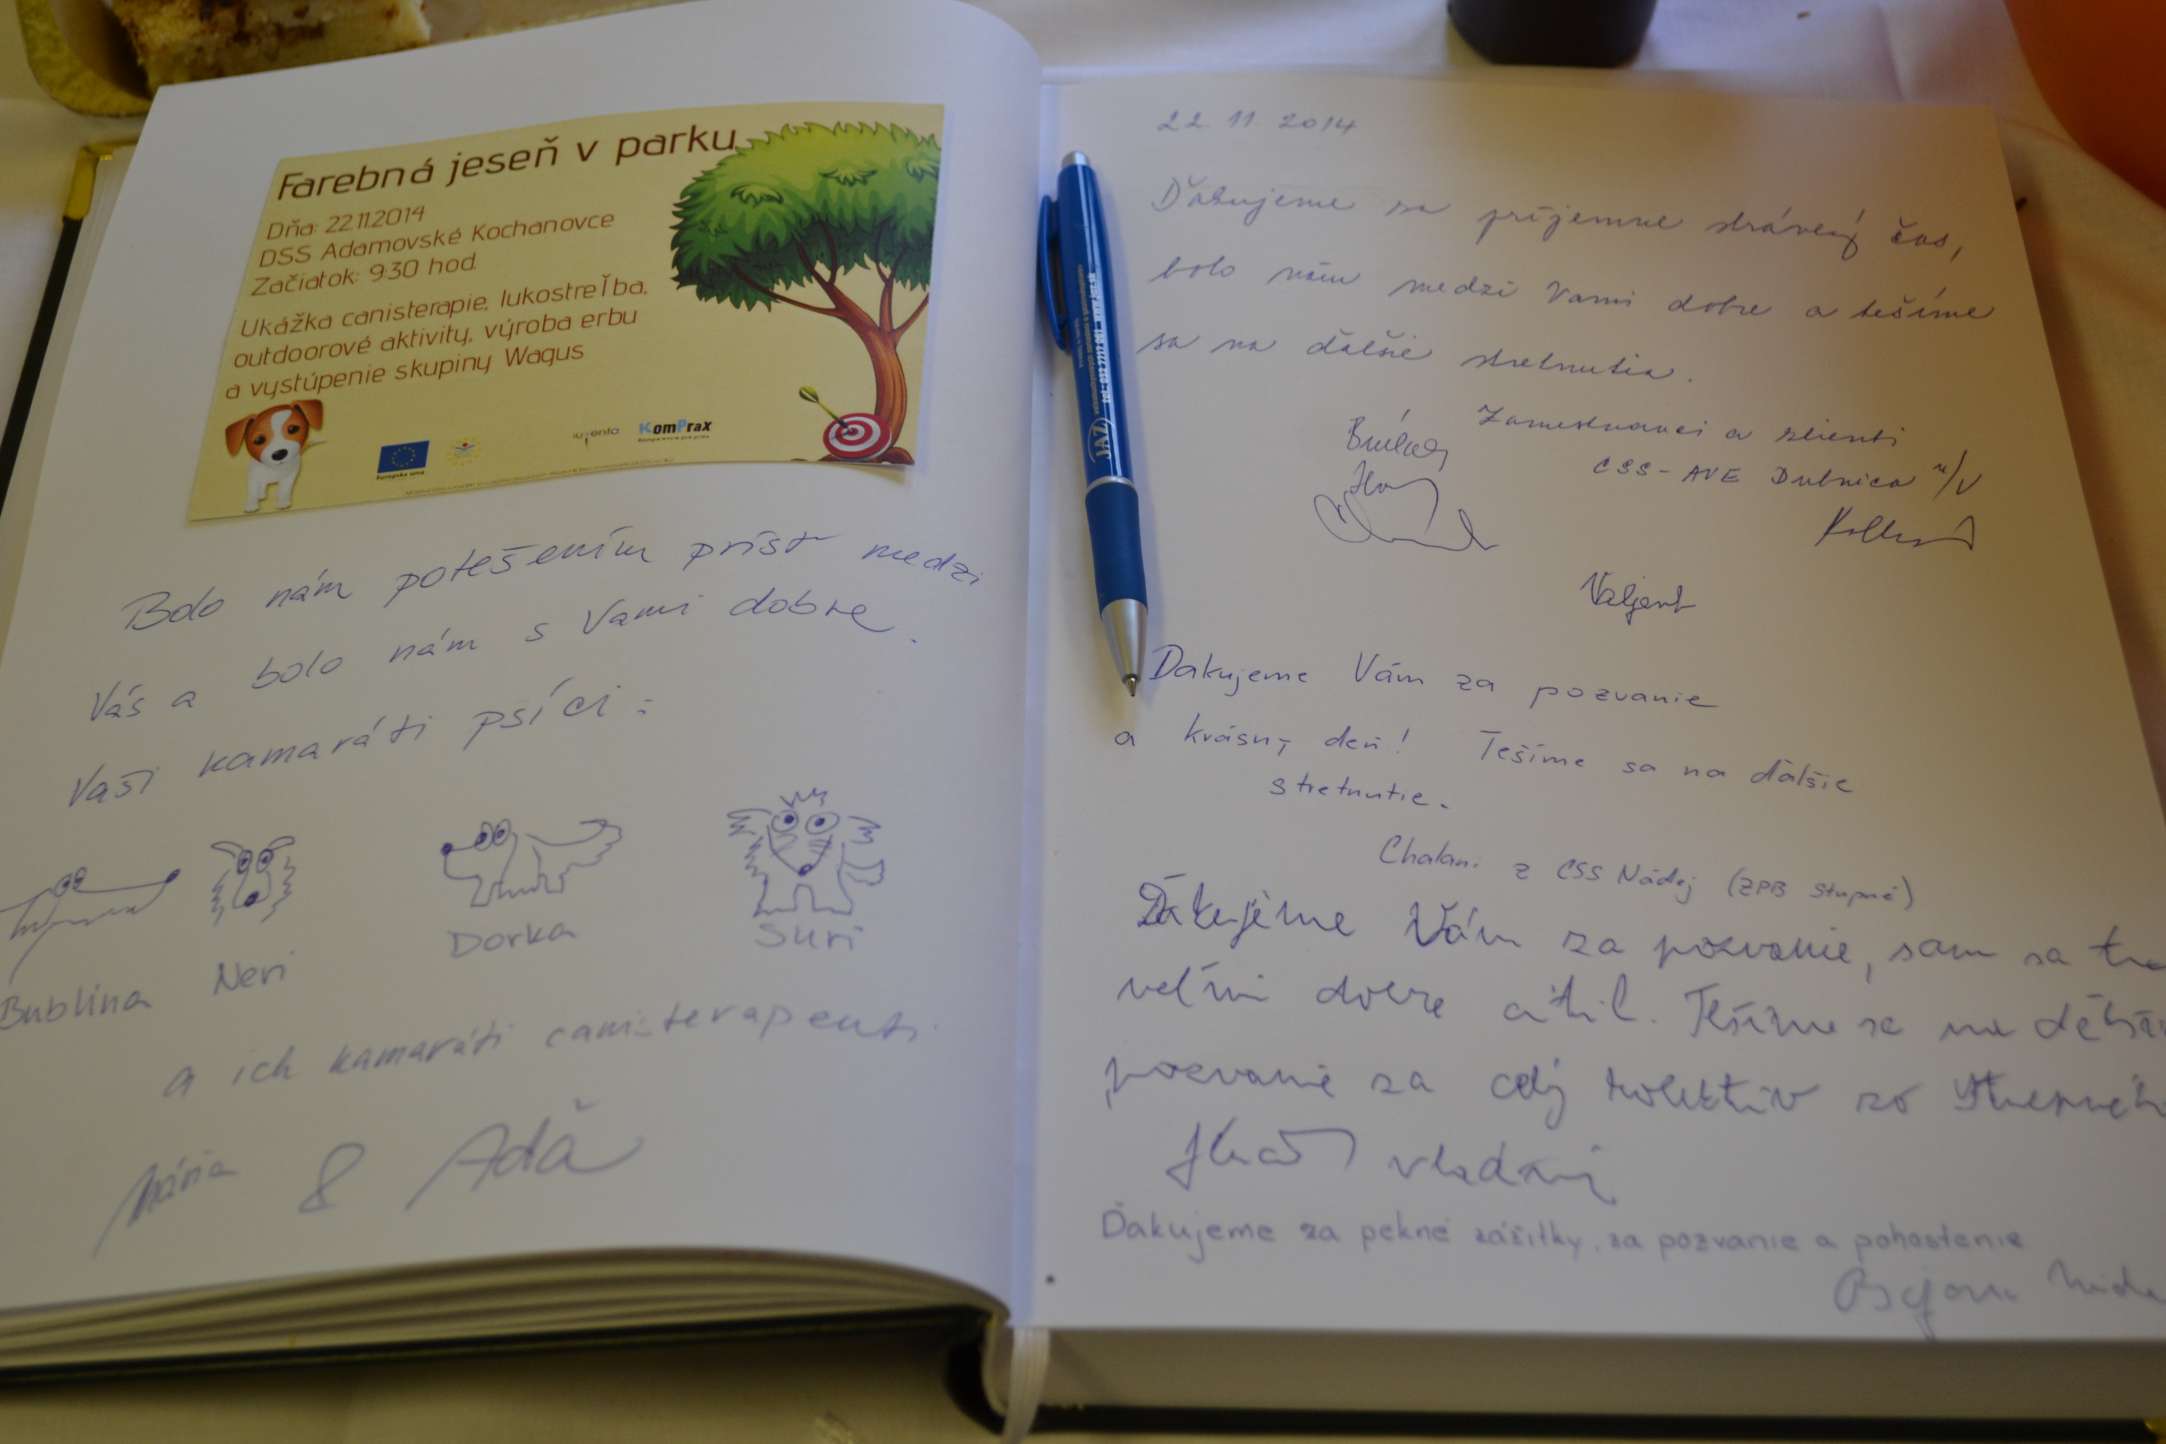 Farebná jeseň v parku
Dňa: 22.11.2014
DSS Adamovské Kochanovce
Začiatok: 9.30 hod.
Ukážka canisterapie, lukostreľba,
outdoorové aktivity, výroba erbu
a vystúpenie skupiny Wagus
Európska únia
iuventa
KomPrax
Bolo nám potešením prísť medzi
Vás a bolo nám s Vami dobre.
Vaši kamaráti psíci:
Bublina Neri Dorka Suri
a ich kamaráti canisterapeuti
Mária & Adă
JAZ
22. 11. 2014
Ďakujeme za príjemne strávený čas,
bolo nám medzi Vami dobre a tešíme
sa na ďalšie stretnutia.
Zamestnanci a klienti
CSS-AVE Dubnica n/V
Valjent
Ďakujeme Vám za pozvanie
a krásny deň! Tešíme sa na ďalšie
stretnutie.
Chalani z CSS Nádej (ZPB Stupné)
Ďakujéme Vám za pozvanie, sa
veľmi dobre cítil. Tešíme sa na
pozvanie za celý kolektív zo
Ďakujeme za pekné zážitky, za pozvanie a pohostenie